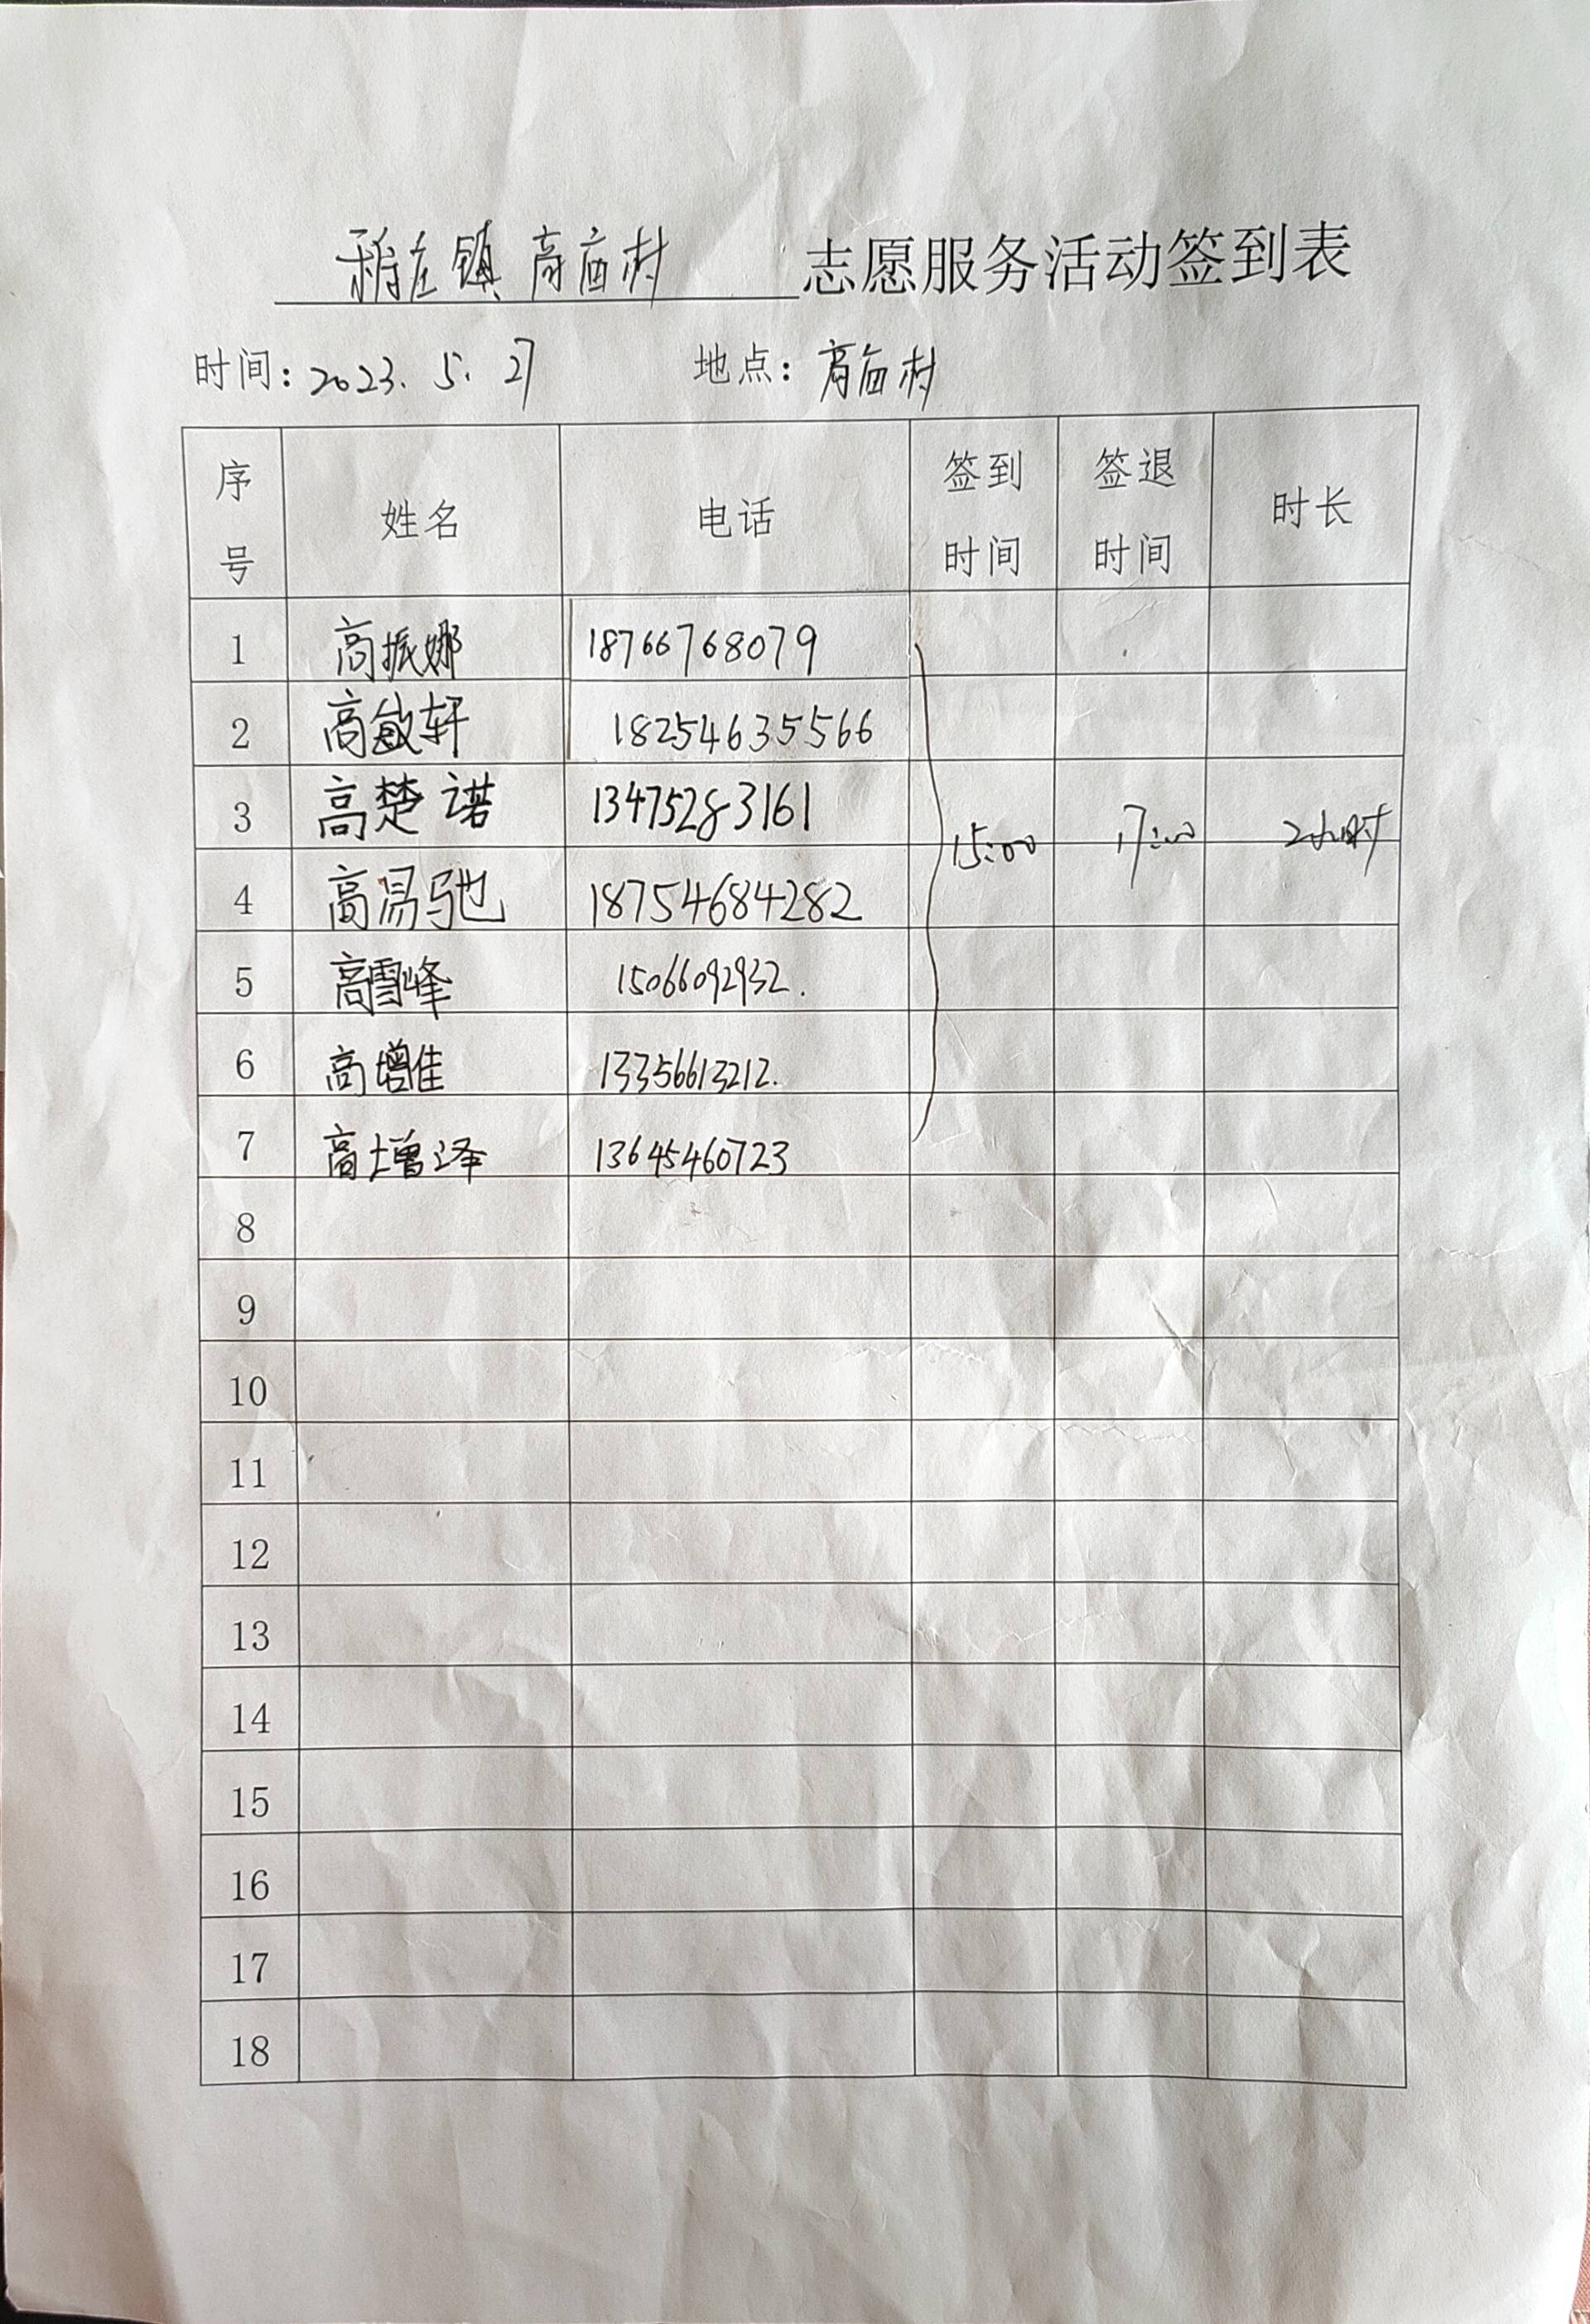 稻庄镇高庙村 志愿服务活动签到表
时间：2023.5.27 地点：高庙村
序号 姓名 电话 签到时间 签退时间 时长
1 高振娜 18766768079
2 高敏轩 18254635566
3 高楚诺 13475283161 15:00 17:00 2小时
4 高易驰 18754684282
5 高雪峰 15066092932.
6 高增佳 13356613212.
7 高增泽 13645460723
8
9
10
11
12
13
14
15
16
17
18